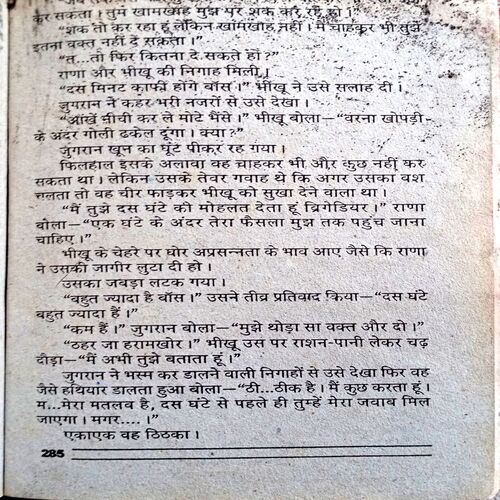 कर सकता। तुम खामखाह मुझ पर शक कर रहे हो।”
“शक तो कर रहा हूं लेकिन खामखाह नहीं। मैं चाहकर भी तुझे
इतना वक्त नहीं दे सकता।”
“त...तो फिर कितना दे सकते हो?”
राणा और भीखू की निगाह मिली।
“दस मिनट काफी होंगे बॉस।” भीखू ने उसे सलाह दी।
जुगरान ने कहर भरी नजरों से उसे देखा।
“आंखें नीची कर ले मोटे भैंसे।” भीखू बोला—“वरना खोपड़ी-
के अंदर गोली ढकेल दूंगा। क्या?”
जुगरान खून का घूंट पीकर रह गया।
फिलहाल इसके अलावा वह चाहकर भी और कुछ नहीं कर-
सकता था। लेकिन उसके तेवर गवाह थे कि अगर उसका वश
चलता तो वह चीर फाड़कर भीखू को सुखा देने वाला था।
“मैं तुझे दस घंटे की मोहलत देता हूं ब्रिगेडियर।” राणा
बोला—“एक घंटे के अंदर तेरा फैसला मुझ तक पहुंच जाना
चाहिए।”
भीखू के चेहरे पर घोर अप्रसन्नता के भाव आए जैसे कि राणा
ने उसकी जागीर लुटा दी हो।
उसका जबड़ा लटक गया।
“बहुत ज्यादा है बॉस।” उसने तीव्र प्रतिवाद किया—“दस घंटे
बहुत ज्यादा हैं।”
“कम हैं।” जुगरान बोला—“मुझे थोड़ा सा वक्त और दो।”
“ठहर जा हरामखोर।” भीखू उस पर राशन-पानी लेकर चढ़
दौड़ा—“मैं अभी तुझे बताता हूं।”
जुगरान ने भस्म कर डालने वाली निगाहों से उसे देखा फिर वह
जैसे हथियार डालता हुआ बोला—“ठी...ठीक है। मैं कुछ करता हूं।
म...मेरा मतलब है, दस घंटे से पहले ही तुम्हें मेरा जवाब मिल
जाएगा। मगर....।”
एकाएक वह ठिठका।
285